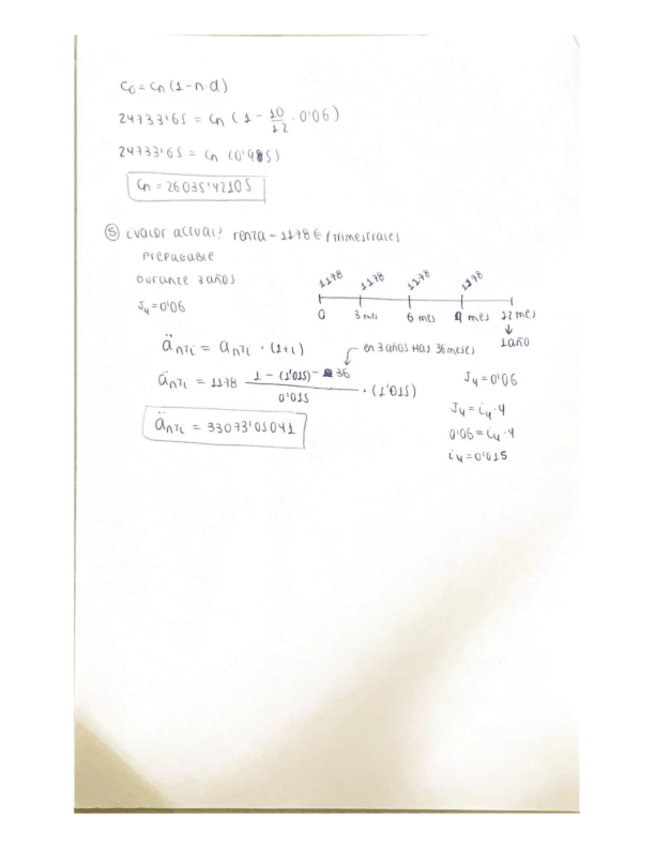 C0 = Cn (1 - n·d)
24733'65 = Cn ( 1 - 10/12 · 0'06 )
24733'65 = Cn (0'95)
Cn = 26035'42105
⑤ ¿valor actual? renta - 1178 € / trimestrales
prepagable
durante 3 años
J4 = 0'06
1178 1178 1178 1178
0 3 mes 6 mes 9 mes 12 mes
↓
1 año
än¬i = an¬i · (1+i)
en 3 años hay 36 meses
än¬i = 1178 1 - (1'015)^-36 / 0'015 · (1'015)
än¬i = 33073'05041
J4 = 0'06
J4 = i4 · 4
0'06 = i4 · 4
i4 = 0'015